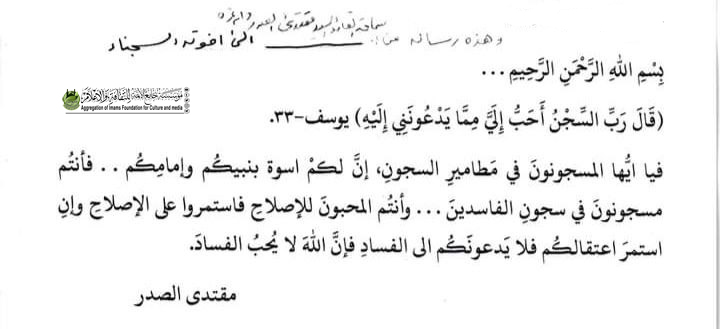 وهذه رسالة من: سماحة القائد السيد مقتدى الصدر
الى اخوته السجناء
بِسْمِ اللهِ الرَّحْمَنِ الرَّحِيمِ ...
مؤسسة جامع الأئمة للثقافة والإعلام
Aggregation of Imams Foundation for Culture and media
(قَالَ رَبِّ السِّجْنُ أَحَبُّ إِلَيَّ مِمَّا يَدْعُونَنِي إِلَيْهِ) يوسف-٣٣.
فيا ايُّها المسجونونَ في مَطاميرِ السجونِ، إنَّ لكمْ اسوة بنبيكُم وإمامِكُم .. فأنتُم
مسجونونَ في سجونِ الفاسدينَ ... وأنتُم المحبونَ للإصلاحِ فاستمروا على الإصلاحِ وإنِ
استمرَ اعتقالكُم فلا يَدعونَكُم الى الفسادِ فإنَّ اللهَ لا يُحبُ الفسادَ.
مقتدى الصدر